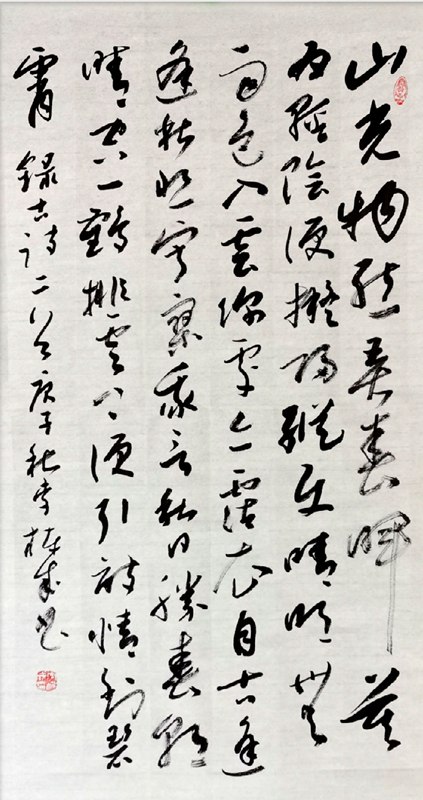 山光物態弄春暉莫
为輕陰便擬歸縱使晴明無
雨色入雲深處亦霑衣自古逢
逢秋悲寂寥我言秋日勝春朝
晴空一鶴排雲上便引詩情到碧
霄 錄古詩二首庚子秋李書